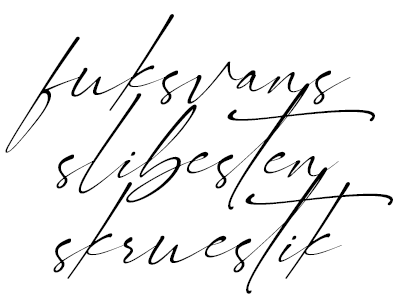 fuksvans
slibesten
skruestik